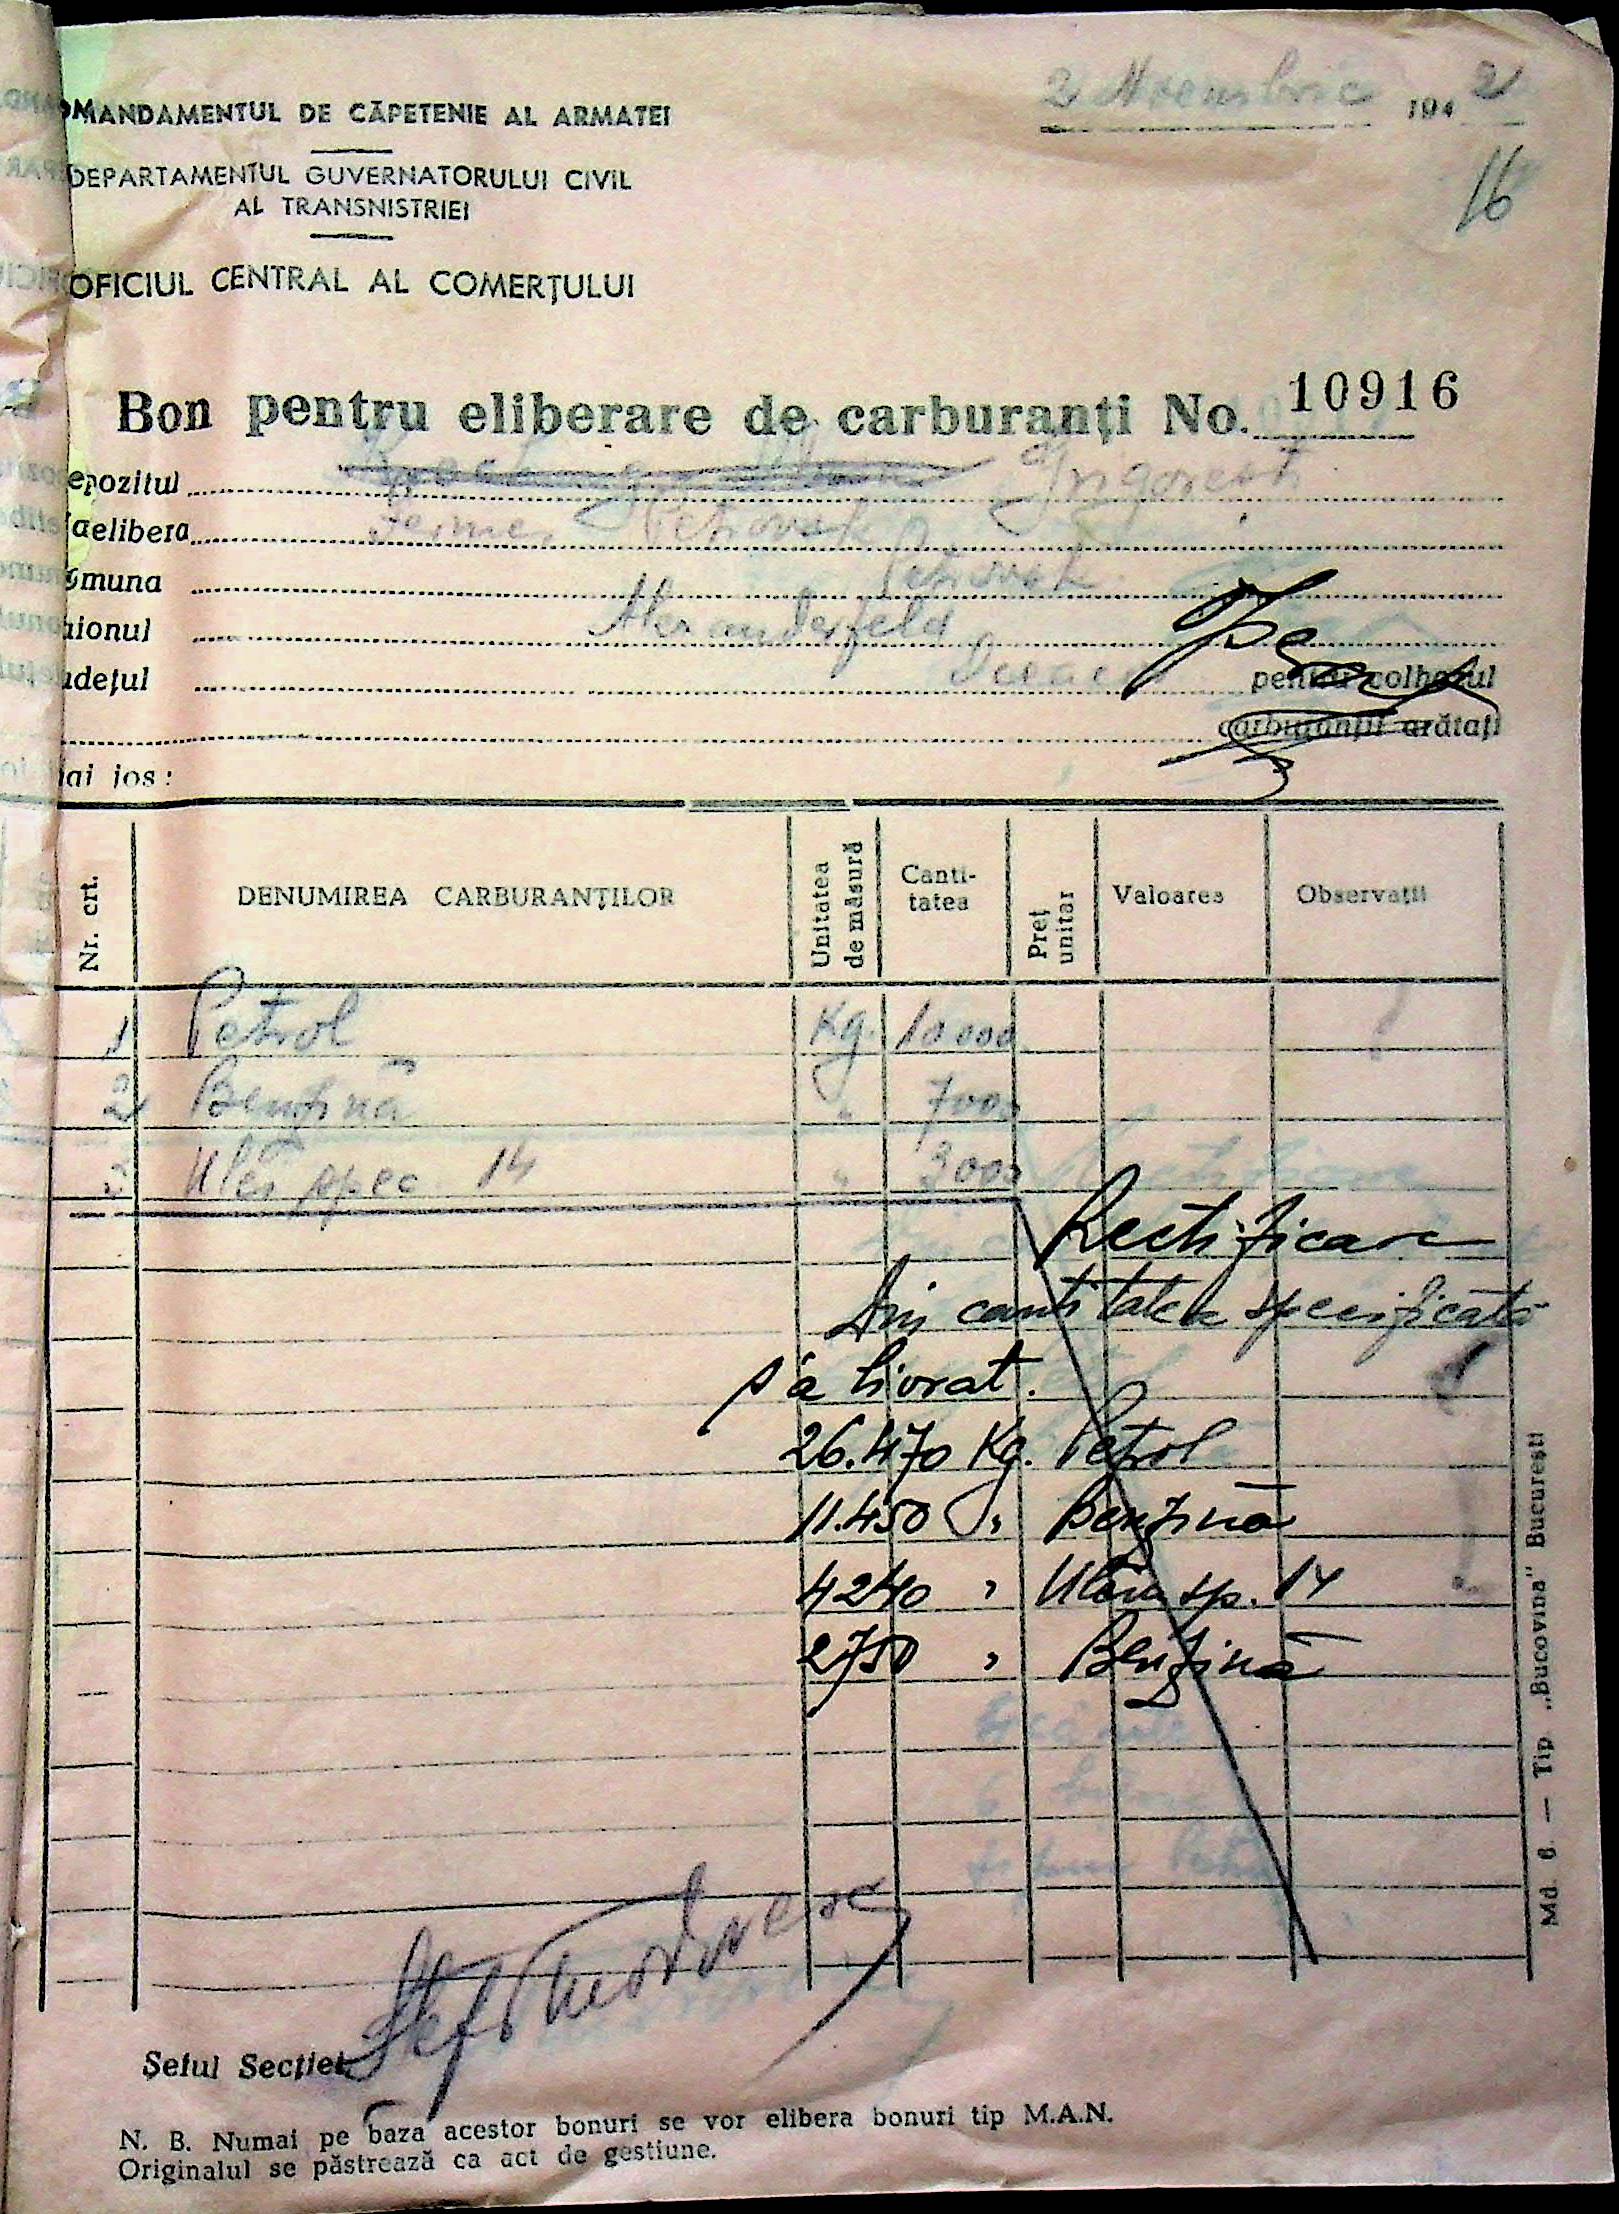 2 Noembrie 1942
OMANDAMENTUL DE CĂPETENIE AL ARMATEI
16
DEPARTAMENTUL GUVERNATORULUI CIVIL
AL TRANSNISTRIEI
OFICIUL CENTRAL AL COMERŢULUI
Bon pentru eliberare de carburanţi No. 10916
epozitul Grigorești
a elibera Petrovsk
omuna Petrovsk
aionul Alexanderfeld
udeţul pentru colhozul
carburanţii arătaţi
ai jos:
Nr. crt.
DENUMIREA CARBURANŢILOR
Unitatea de măsură
Canti-tatea
Preţ unitar
Valoarea
Observaţii
1 Petrol Kg. 10000
2 Benzină " 7000
3 Ulei spec. 14 " 3000
Rectificare
Din cantitatea specificată
s'a livrat.
26.470 Kg. Petrol
11.450 " Benzină
4240 " Uleiu sp. 14
2750 " Benzină
Md. 6. — Tip. „Bucovina" Bucureşti
Şeful Secţiei
N. B. Numai pe baza acestor bonuri se vor elibera bonuri tip M.A.N.
Originalul se păstrează ca act de gestiune.